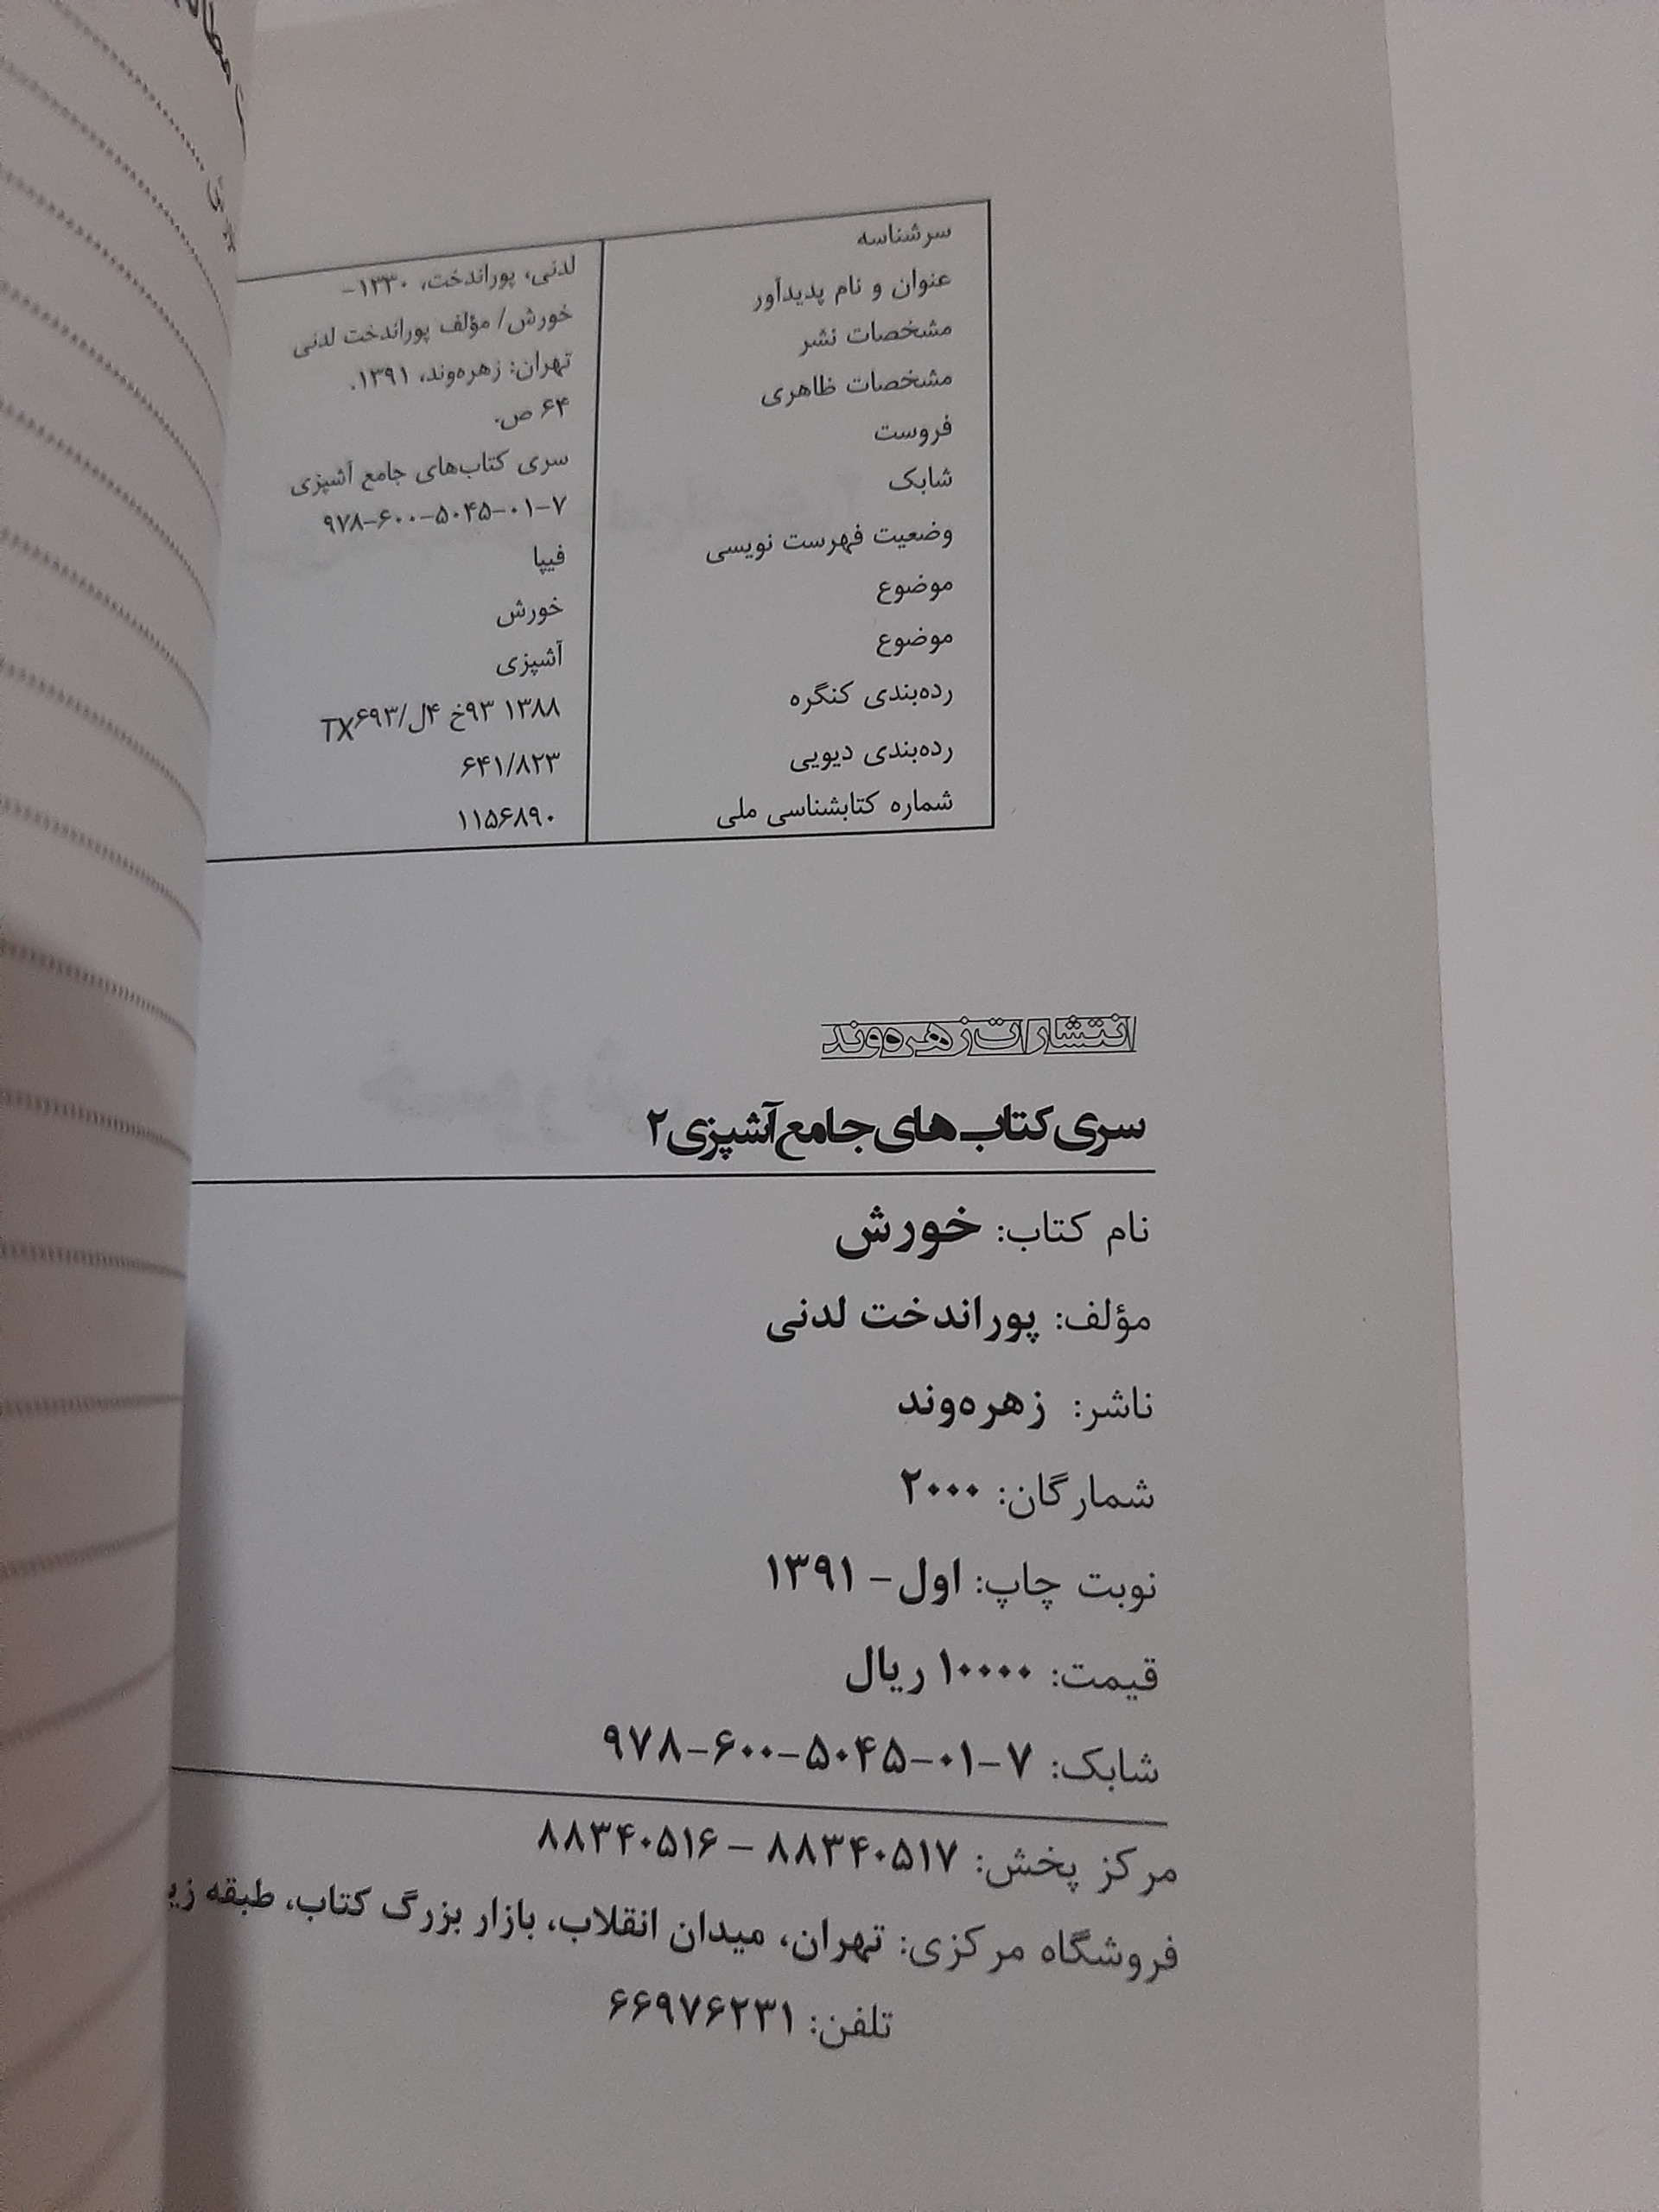 سرشناسه لدنی، پوراندخت، ۱۳۳۰-
عنوان و نام پدیدآور خورش/ مؤلف پوراندخت لدنی
مشخصات نشر تهران: زهره‌وند، ۱۳۹۱.
مشخصات ظاهری ۶۴ ص.
فروست سری کتاب‌های جامع آشپزی
شابک ۹۷۸-۶۰۰-۵۰۴۵-۰۱-۷
وضعیت فهرست نویسی فیپا
موضوع خورش
موضوع آشپزی
رده‌بندی کنگره ۱۳۸۸ ۹۳خ ۴ل/TX۶۹۳
رده‌بندی دیویی ۶۴۱/۸۲۳
شماره کتابشناسی ملی ۱۱۵۶۸۹۰
انتشارات زهره‌وند
سری کتاب‌های جامع آشپزی ۲
نام کتاب: خورش
مؤلف: پوراندخت لدنی
ناشر: زهره‌وند
شمارگان: ۲۰۰۰
نوبت چاپ: اول- ۱۳۹۱
قیمت: ۱۰۰۰۰ ریال
شابک: ۹۷۸-۶۰۰-۵۰۴۵-۰۱-۷
مرکز پخش: ۸۸۳۴۰۵۱۷ - ۸۸۳۴۰۵۱۶
فروشگاه مرکزی: تهران، میدان انقلاب، بازار بزرگ کتاب، طبقه
تلفن: ۶۶۹۷۶۲۳۱